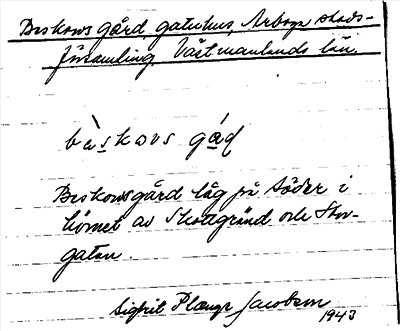 Beskows gård, gatuhus, Arboga stads-
församling, Västmanlands län.
bàskovs gád
Beskows gård låg på söder i
hörnet av Skottgränd och Stor-
gatan.
Sigfrid Jacobson 1943